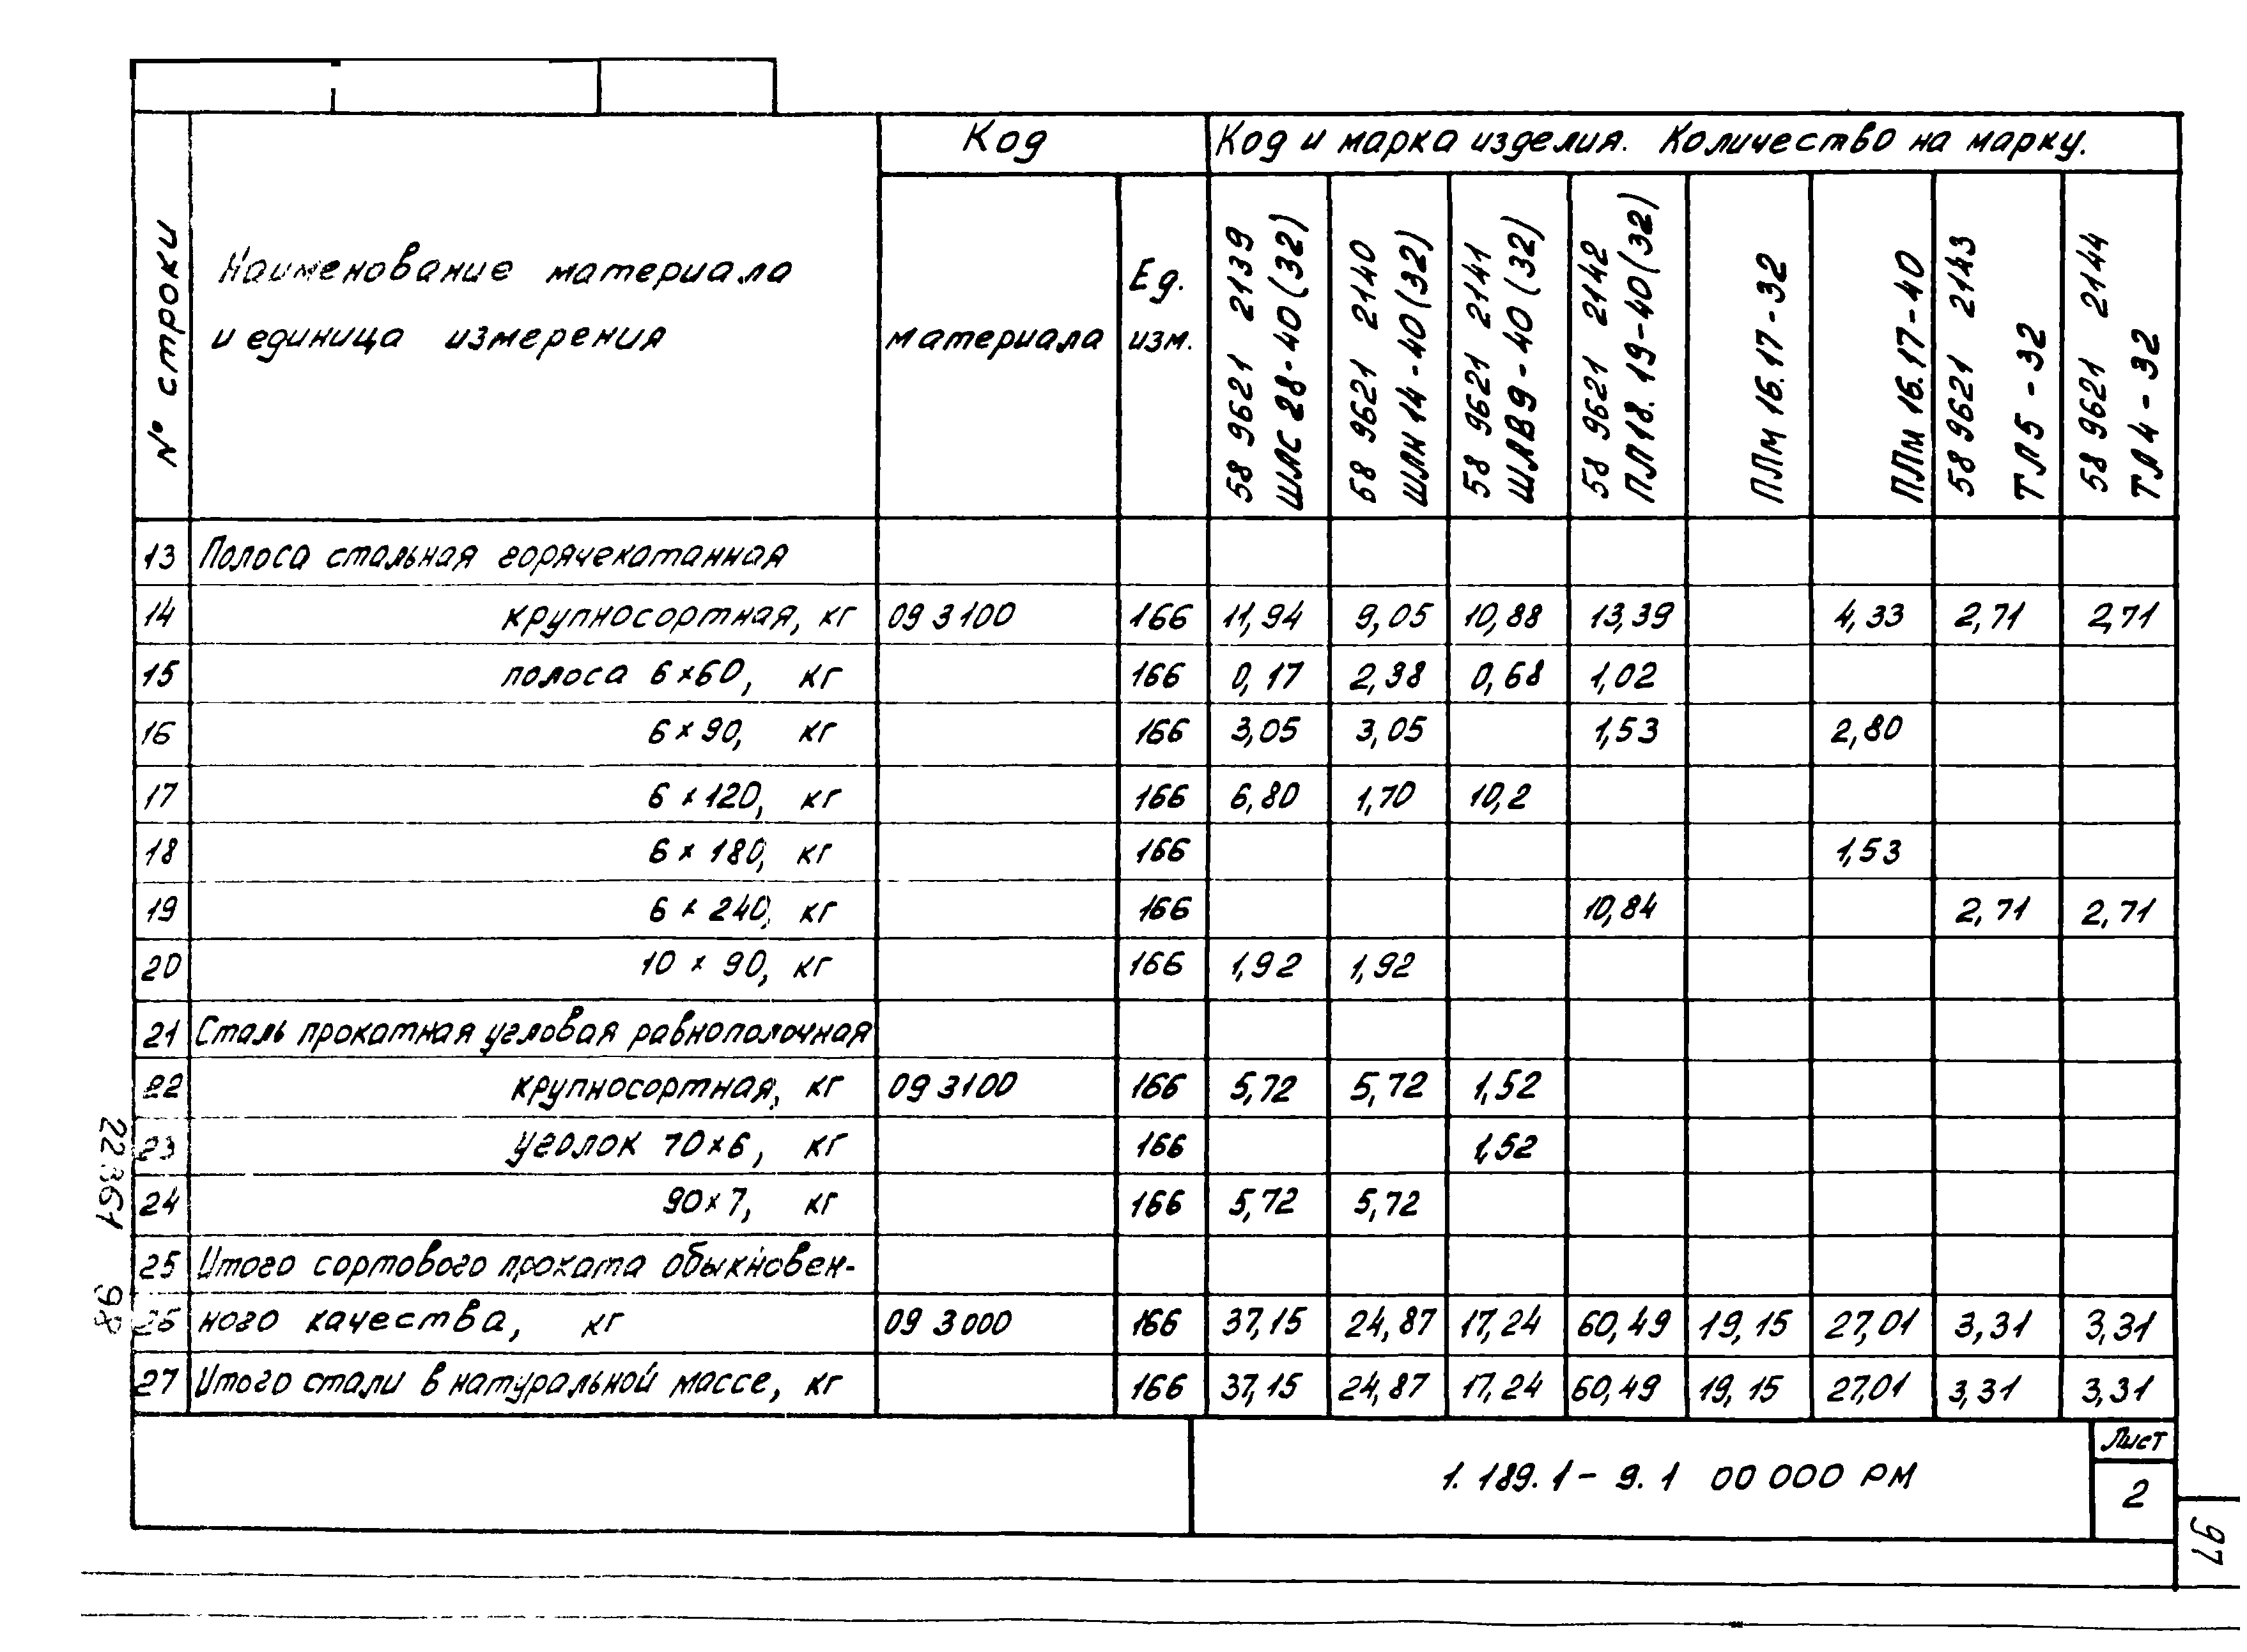 Код
Код и марка изделия. Количество на марку.
№ строки
Наименование материала
и единица измерения
материала
Ед.
изм.
58 9621 2139
ШЛС 28-40(32)
58 9621 2140
ШЛН 14-40(32)
58 9621 2141
ШЛВ9-40(32)
58 9621 2142
ПЛ18.19-40(32)
ПЛм 16.17-32
ПЛм 16.17-40
58 9621 2143
ТЛ5-32
58 9621 2144
ТЛ4-32
13 Полоса стальная горячекатанная
14 крупносортная, кг 09 3100 166 11,94 9,05 10,88 13,39 4,33 2,71 2,71
15 полоса 6×60, кг 166 0,17 2,38 0,68 1,02
16 6×90, кг 166 3,05 3,05 1,53 2,80
17 6×120, кг 166 6,80 1,70 10,2
18 6×180, кг 166 1,53
19 6×240, кг 166 10,84 2,71 2,71
20 10×90, кг 166 1,92 1,92
21 Сталь прокатная угловая равнополочная
22 крупносортная, кг 09 3100 166 5,72 5,72 1,52
23 уголок 70×6, кг 166 1,52
24 90×7, кг 166 5,72 5,72
25 Итого сортового проката обыкновен-
26 ного качества, кг 09 3000 166 37,15 24,87 17,24 60,49 19,15 27,01 3,31 3,31
27 Итого стали в натуральной массе, кг 166 37,15 24,87 17,24 60,49 19,15 27,01 3,31 3,31
1.189.1-9.1 00 000 РМ
Лист
2
22361 98
97